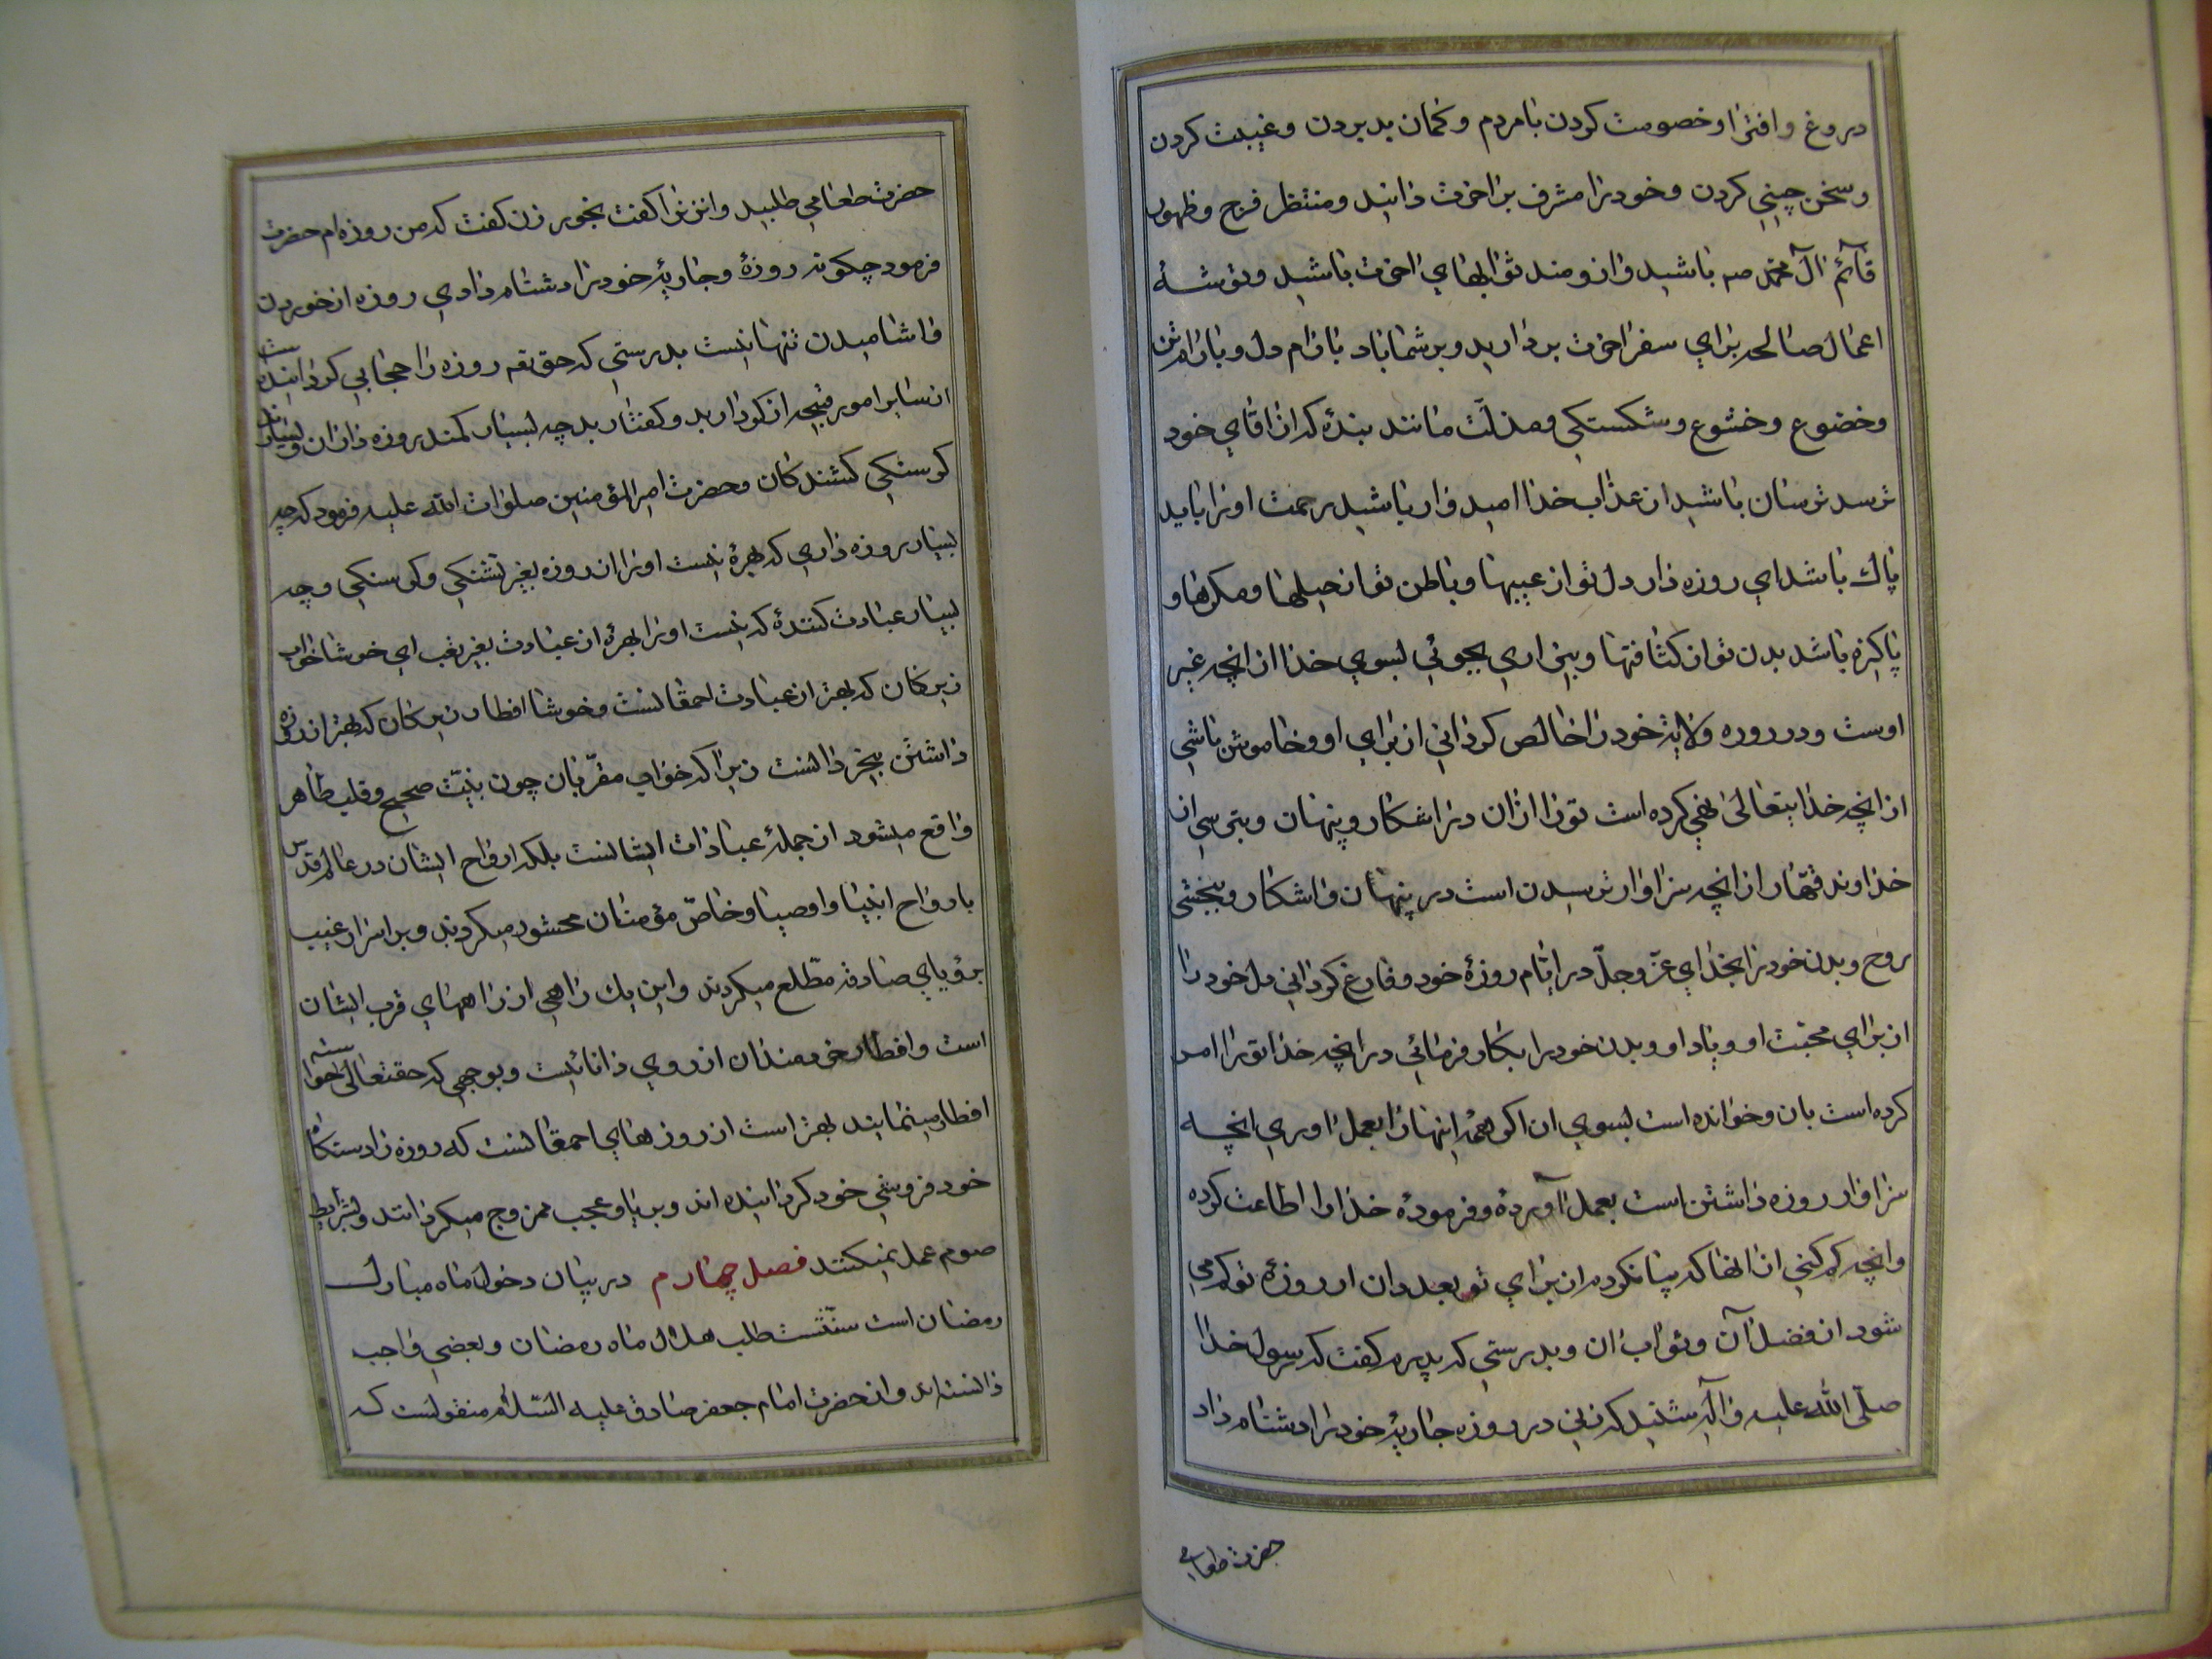 دروغ وافترا وخصومت کردن بامردم وکمان بد بردن وغیبت کردن
وسخن چینی کردن وخود را مشرف براخرت دانید ومنتظر فرج وظهور
قائم آل محمد صه باشید وارزومند ثوابهای اخرت باشید وتوشهٔ
اعمال صالحه برای سفر اخرت بردارید وبر شما باد بارام دل وبارام تن
وخضوع وخشوع وشکستکی ومذلّت مانند بندهٔ که از اقای خود
ترسد ترسان باشید از عذاب خدا امیدوار باشید رحمت او را باید
پاک باشد ای روزه دار دل تو از عیبها وباطن تو از حیلها ومکرها و
پاکیزه باشد بدن تو از کثافتها وبیزاری بجوئی بسوی خدا از انچه غیر
اوست ودر روزه ولایت خود را خالص کردانی از برای او وخاموش باشی
از انچه خدایتعالی نهی کرده است تو را از ان در اشکار وپنهان وبترسی از
خداوند قهار از انچه سزاوار ترسیدن است در پنهان واشکار وببخشی
روح وبدن خود را بخدای عزّ وجلّ در ایّام روزهٔ خود وفارغ کردانی دل خود را
از برای محبّت او ویاد او وبدن خود را بکار فرمائی در انچه خدا تو را امر
کرده است بان وخوانده است بسوی ان اکر همهٔ اینها را بعمل اوری انچه
سزاوار روزه داشتن است بعمل آوردهٔ وفرمودهٔ خدا را اطاعت کرده
وانچه کم کنی از انها که بیان کردم از برای تو بعدد ان از روزهٔ تو کم می
شود از فضل آن وثواب ان وبدرستی که پدرم کفت که رسول خدا
صلّی الله علیه وآله شنید که زنی در روزه جاریهٔ خود را دشنام داد
حضرت طعامی
حضرت طعامی طلبید وانزن را کفت بخور زن کفت که من روزه ام حضرت
فرمود چکونه روزهٔ وجاریهٔ خود را دشنام دادی روزه از خوردن
واشامیدن تنها نیست بدرستی که حقتعه روزه را حجابی کردانیده است
از سایر امور قبیحه از کردار بد وکفتار بد چه بسیار کمند روزه داران وبسیارند
کرسنکی کشندکان وحضرت امیرالمؤمنین صلوات الله علیه فرمود که چه
بسیار روزه داری که بهرهٔ نیست او را از روزه بغیر تشنکی وکرسنکی وچه
بسیار عبادت کنندهٔ که نیست او را بهرهٔ از عبادت بغیر تعب ای خوشا خواب
زیرکان که بهتر از عبادت احمقانست وخوشا افطار زیرکان که بهتر از روزه
داشتن بیخردانست زیرا که خواب مقرّبان چون بنیّت صحیح وقلب طاهر
واقع میشود از جملهٔ عبادات ایشانست بلکه ارواح ایشان در عالم قدس
بارواح انبیا واوصیا وخاصّ مؤمنان محشور میکردند وبر اسرار غیب
برؤیای صادقه مطّلع میکردند واین یک راهی از راههای قرب ایشان
است وافطار خردمندان از روی دانائیست وبوجهی که حقتعالی خواسته
افطار مینمایند بهتر است از روزهای احمقانست که روزه را دستکاه
خود فروشی خود کردانیده اند وبریا وعجب ممزوج میکردانند وبشرایط
صوم عمل نمیکنند فصل چهارم در بیان دخول ماه مبارک
رمضان است سنّتست طلب هلال ماه رمضان وبعضی واجب
دانسته اند واز حضرت امام جعفر صادق علیه السّلام منقولست که